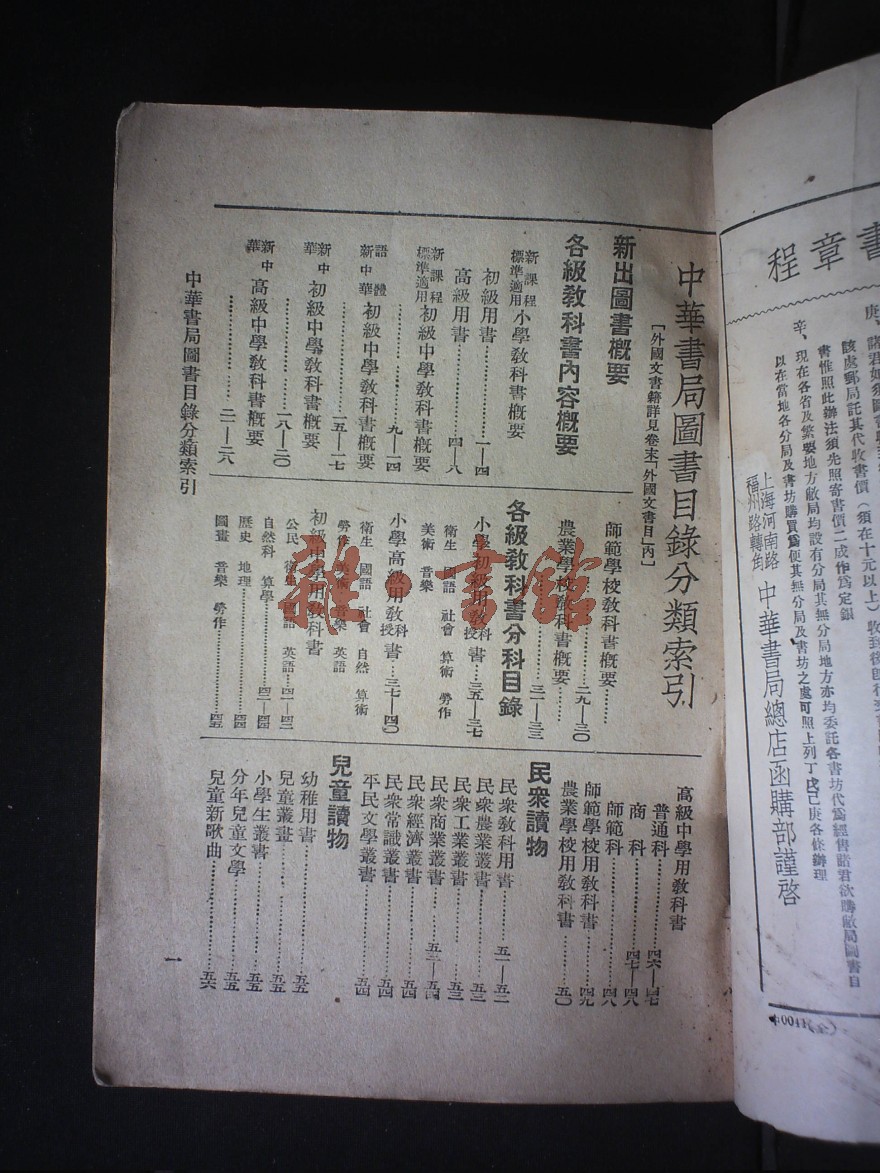 書章程
諸君如須圖書
該處郵局託其代收書價(須在十元以上)收到後卽行
書惟照此辦法須先照寄書價二成作爲定銀
辛、現在各省及繁要地方敝局均設有分局其無分局地方亦均委託各書坊代爲經售諸君欲購敝局圖書目
以在當地各分局及書坊購買爲便其無分局及書坊之處可照上列丁戊己庚各條辦理
上海河南路
福州路轉角
中華書局總店函購部謹啓
中華書局圖書目錄分類索引
[外國文書籍詳見卷末「外國文書目」內]
新出圖書概要
各級敎科書內容概要
新課程標準適用 小學敎科書概要
初級用書…………一—四
高級用書…………四—八
新課程標準適用 初級中學敎科書概要
…………九—一四
語體新中華 初級中學敎科書概要
…………一五—一七
新中華 初級中學敎科書概要
…………一八—二〇
新中華 高級中學敎科書概要
…………二一—二八
師範學校敎科書概要………
…………二九—三〇
農業學校敎科書概要………
…………三一—三三
各級敎科書分科目錄
小學初級用敎科敎授書…三五—三七
衞生 國語 社會 算術 勞作
美術 音樂
小學高級用敎科敎授書…三七—四〇
衞生 國語 社會 自然 算術
勞作 美術 音樂 英語
初級中學用敎科書
公民 衞生 國語 英語…四一—四二
自然科 算學…………四二—四四
歷史 地理…………四四
圖畫 音樂 勞作…………四五
高級中學用敎科書
普通科…………四六—四七
商科…………四七—四八
師範科…………四八
師範學校用敎科書…………四九
農業學校用敎科書…………五〇
民衆讀物
民衆敎科用書…………五一—五二
民衆農業叢書…………五三
民衆工業叢書…………五三
民衆商業叢書…………五三—五四
民衆經濟叢書…………五四
民衆常識叢書…………五四
平民文學叢書…………五四
兒童讀物
幼稚用書…………五五
兒童叢畫…………五五
小學生叢書…………五五
分年兒童文學…………五五
兒童新歌曲…………五六
中華書局圖書目錄分類索引
一
雜·書館